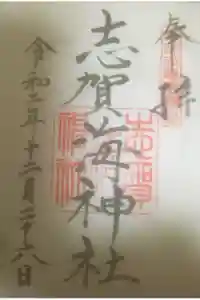 奉拝
志賀海神社
令和二年十二月二十八日